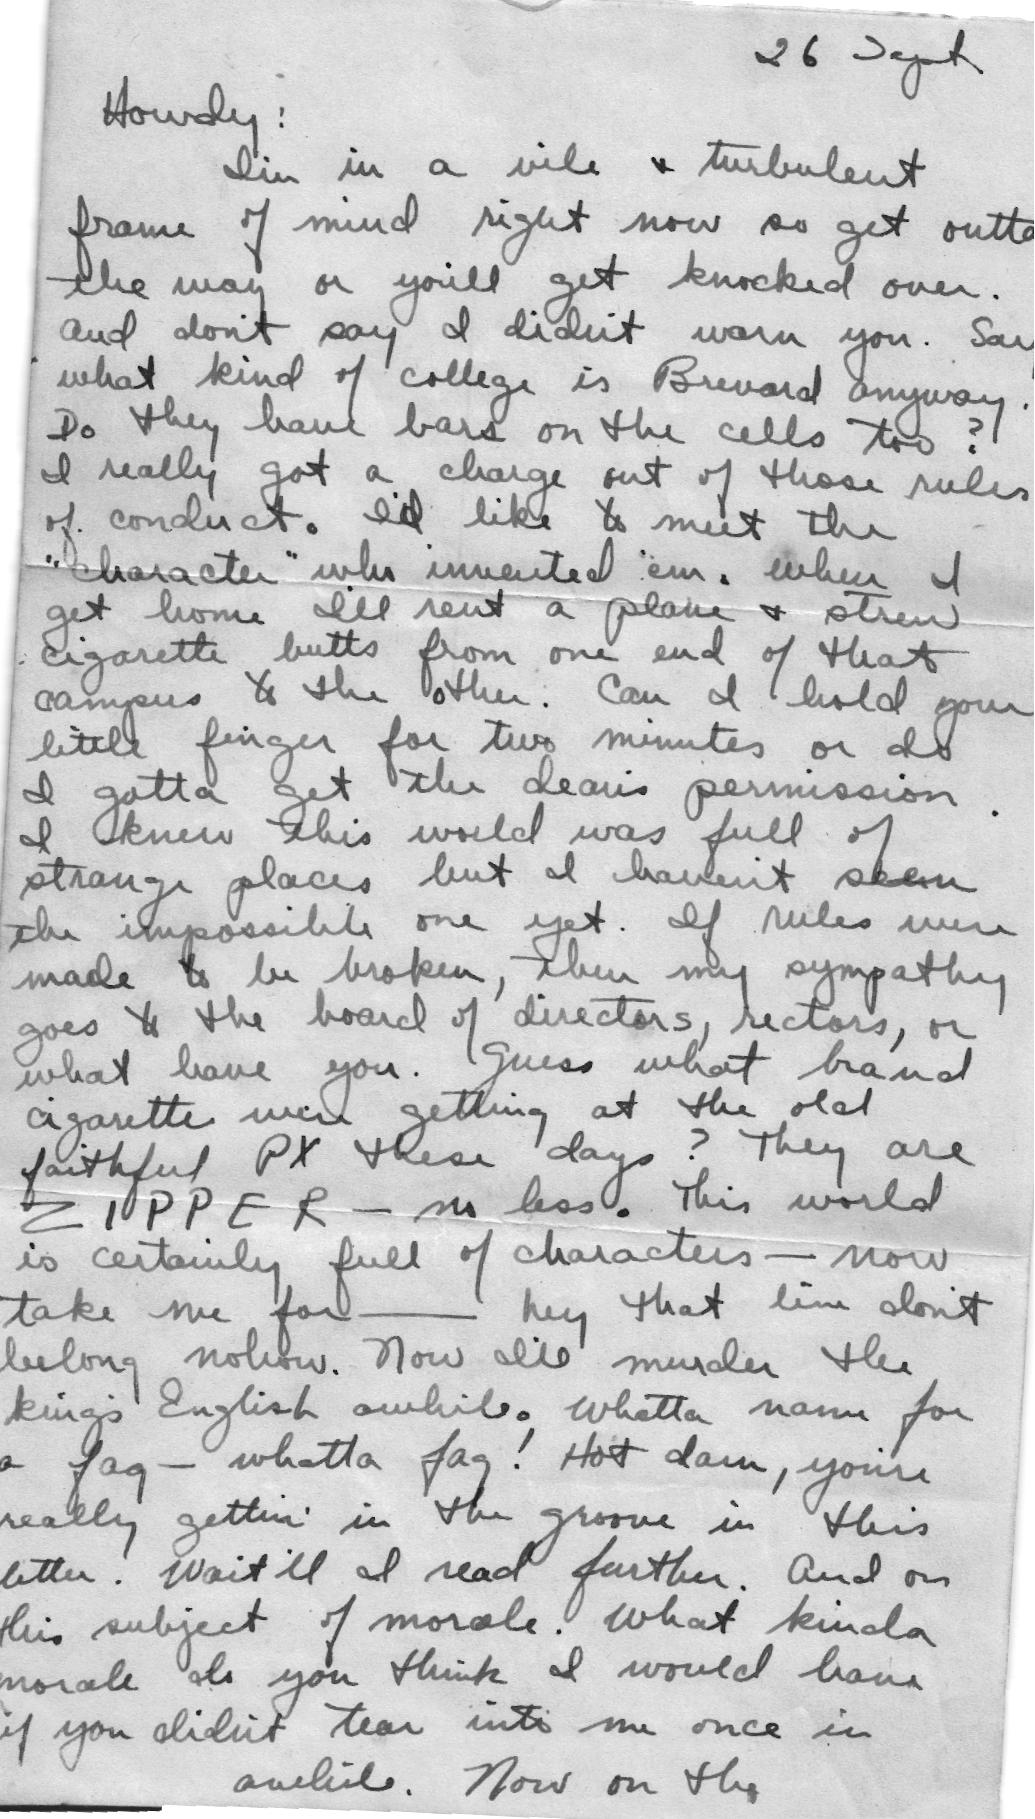 26 Sept
Howdy:
I'm in a vile & turbulent
frame of mind right now so get outta
the way or you'll get knocked over.
And don't say I didn't warn you. Say
what kind of college is Brevard anyway.
Do they have bars on the cells too?
I really got a charge out of those rules
of conduct. I'd like to meet the
"character" who invented 'em. When I
get home I'll rent a plane & strew
cigarette butts from one end of that
campus to the other. Can I hold your
little finger for two minutes or do
I gotta get the dean's permission.
I knew this world was full of
strange places but I haven't seen
the impossible one yet. If rules were
made to be broken, then my sympathy
goes to the board of directors, rectors, or
what have you. Guess what brand
cigarette we're getting at the old
faithful PX these days? They are
ZIPPER — no less. This world
is certainly full of characters — now
take me for —— hey that line don't
belong nohow. Now I'll murder the
king's English awhile. Whatta name for
a fag — whatta fag! Hot dam, you're
really gettin' in the groove in this
letter. Wait'll I read further. And on
this subject of morale. What kinda
morale do you think I would have
if you didn't tear into me once in
awhile. Now on the